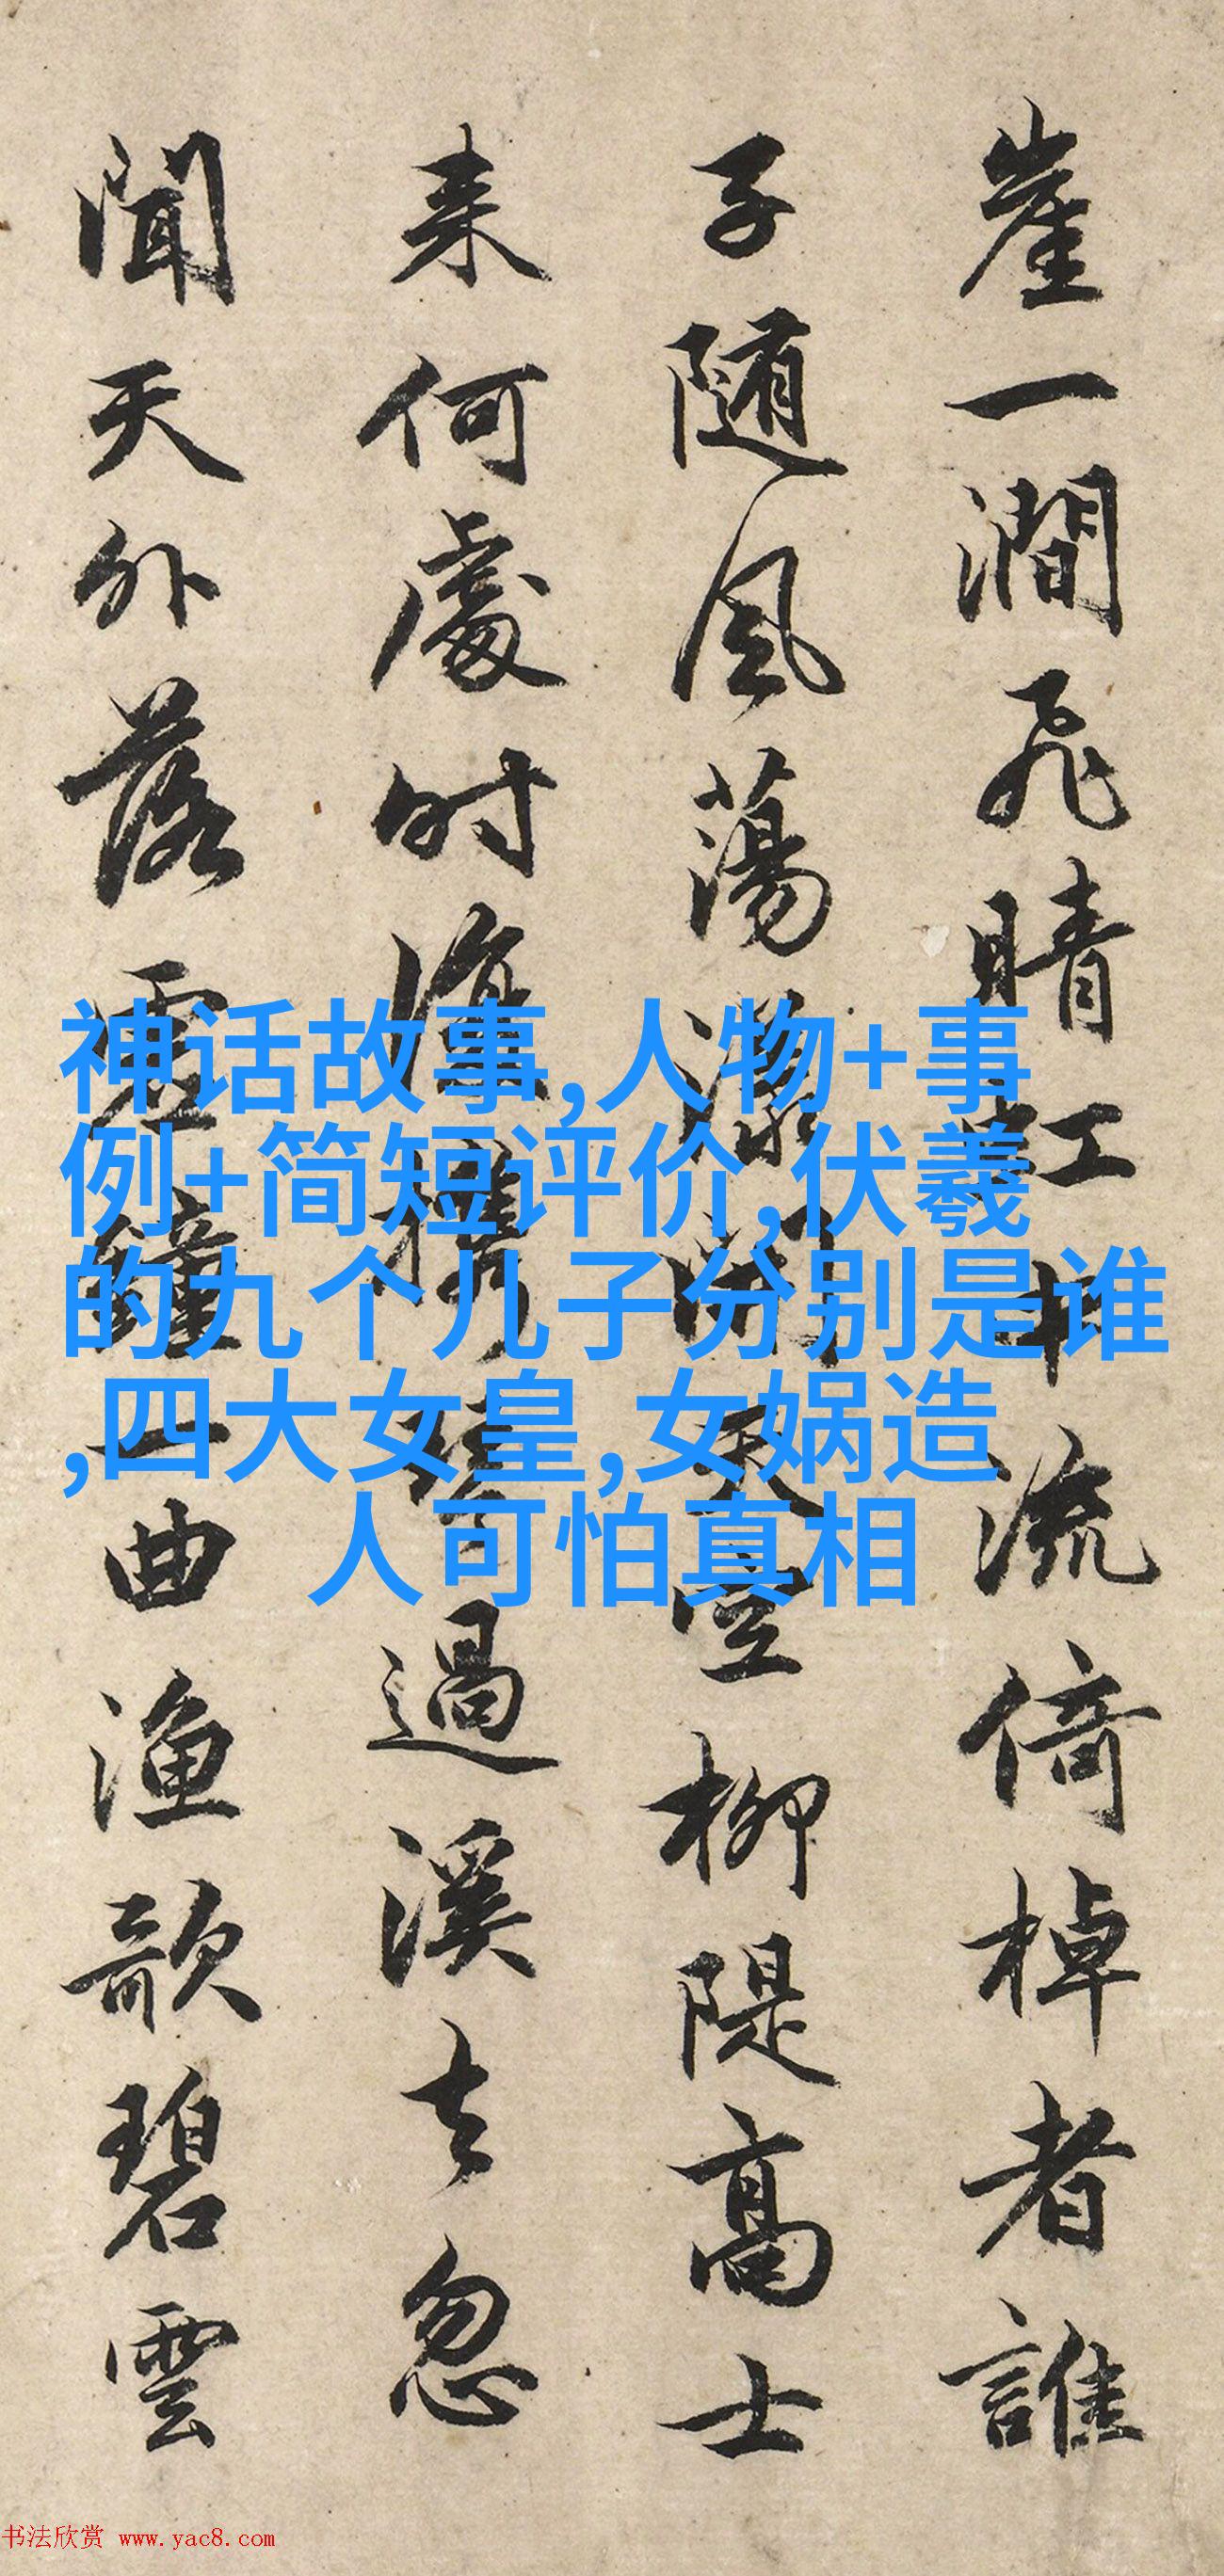 崖一澗飛晴虹中流倚棹者誰
子随風蕩漾閒天空柳隄高士
来何處时復携琴過溪去忽
聞天外落雲鐘一曲漁歌碧雲
神话故事,人物+事
例+简短评价,伏羲
的九个儿子分别是谁
,四大女皇,女娲造
人可怕真相
书法欣赏 www.yac8.com